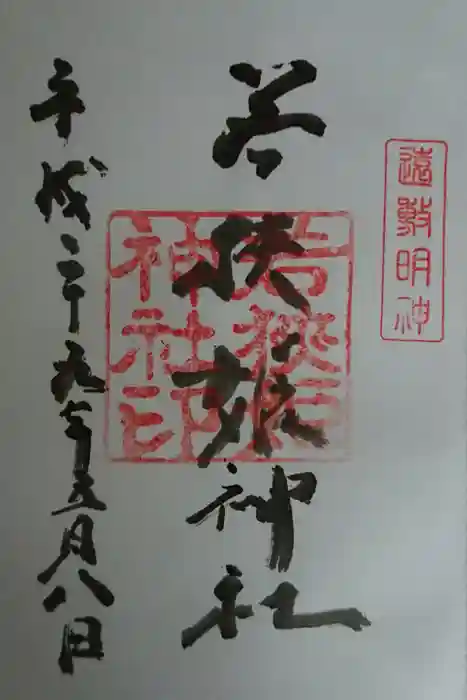 遠敷明神
若狭姫神社
若狭姫
神社印
平成二十九年五月八日